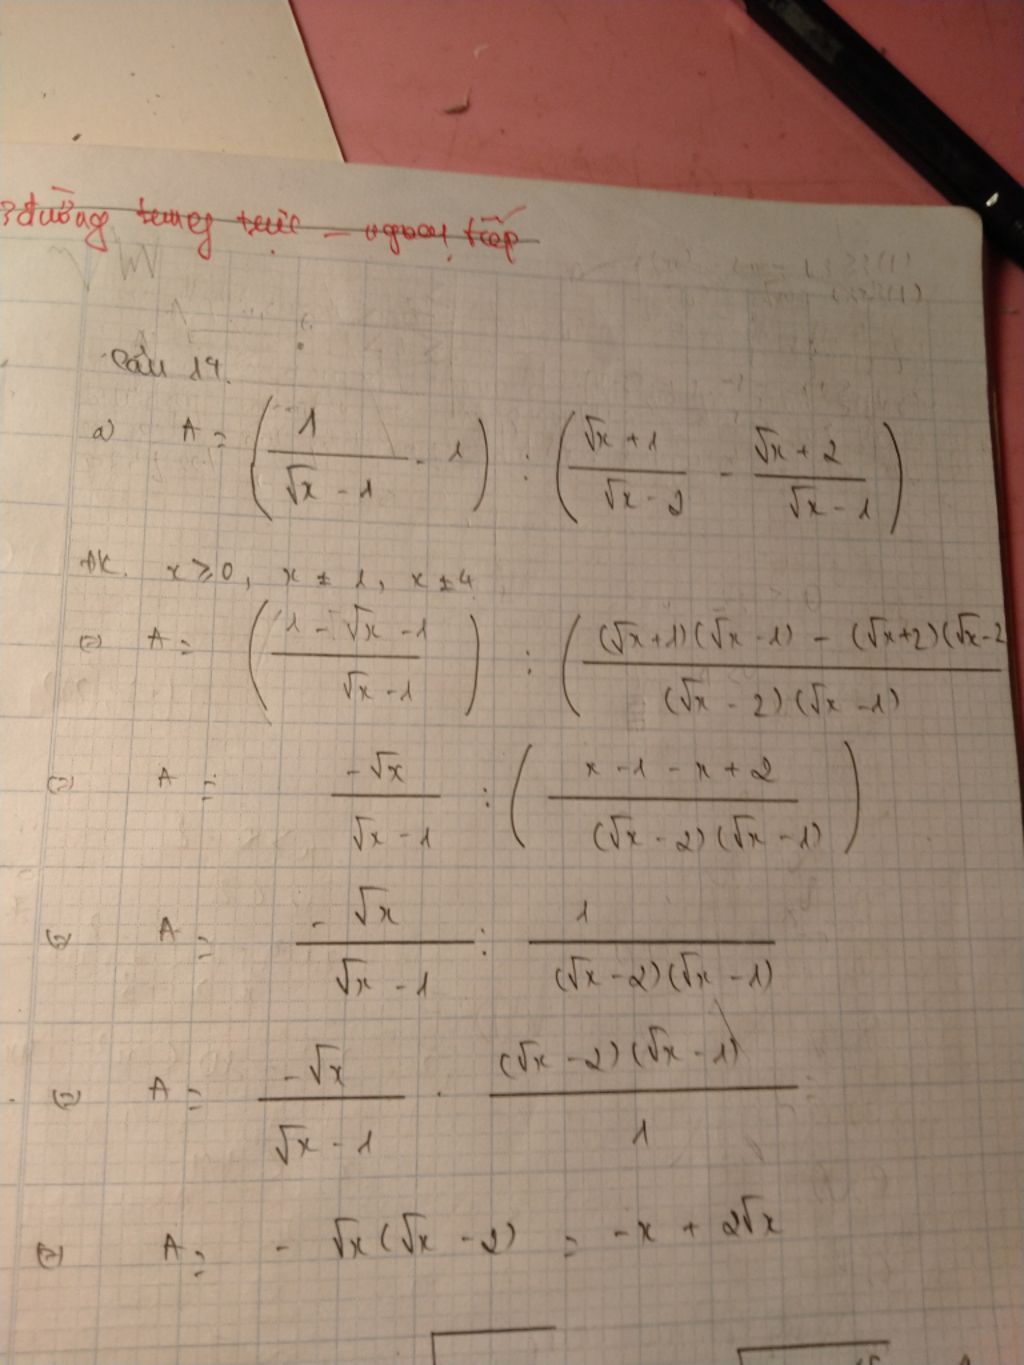 đường trung trực - ngoại tiếp
Câu 14.
a) A = ( 1 / (√x - 1) - 1 ) : ( (√x + 1) / (√x - 2) - (√x + 2) / (√x - 1) )
ĐK. x ≥ 0, x ≠ 1, x ≠ 4
(=) A = ( (1 - √x - 1) / (√x - 1) ) : ( ((√x + 1)(√x - 1) - (√x + 2)(√x - 2) / ((√x - 2)(√x - 1))
(=) A = -√x / (√x - 1) : ( (x - 1 - x + 2) / ((√x - 2)(√x - 1)) )
(=) A = -√x / (√x - 1) : 1 / ((√x - 2)(√x - 1))
(=) A = -√x / (√x - 1) . (√x - 2)(√x - 1) / 1
(=) A = - √x(√x - 2) = -x + 2√x